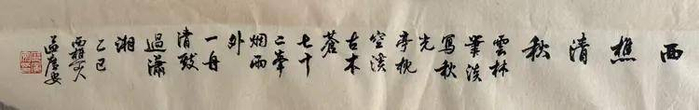 西樵清秋
雲林
筆淡
寫秋
光
亭枕
空溪
古木
蒼
七十
二峯
烟雨
外
一舟
清致
過瀟
湘
乙巳
西樵山人
孟廣安